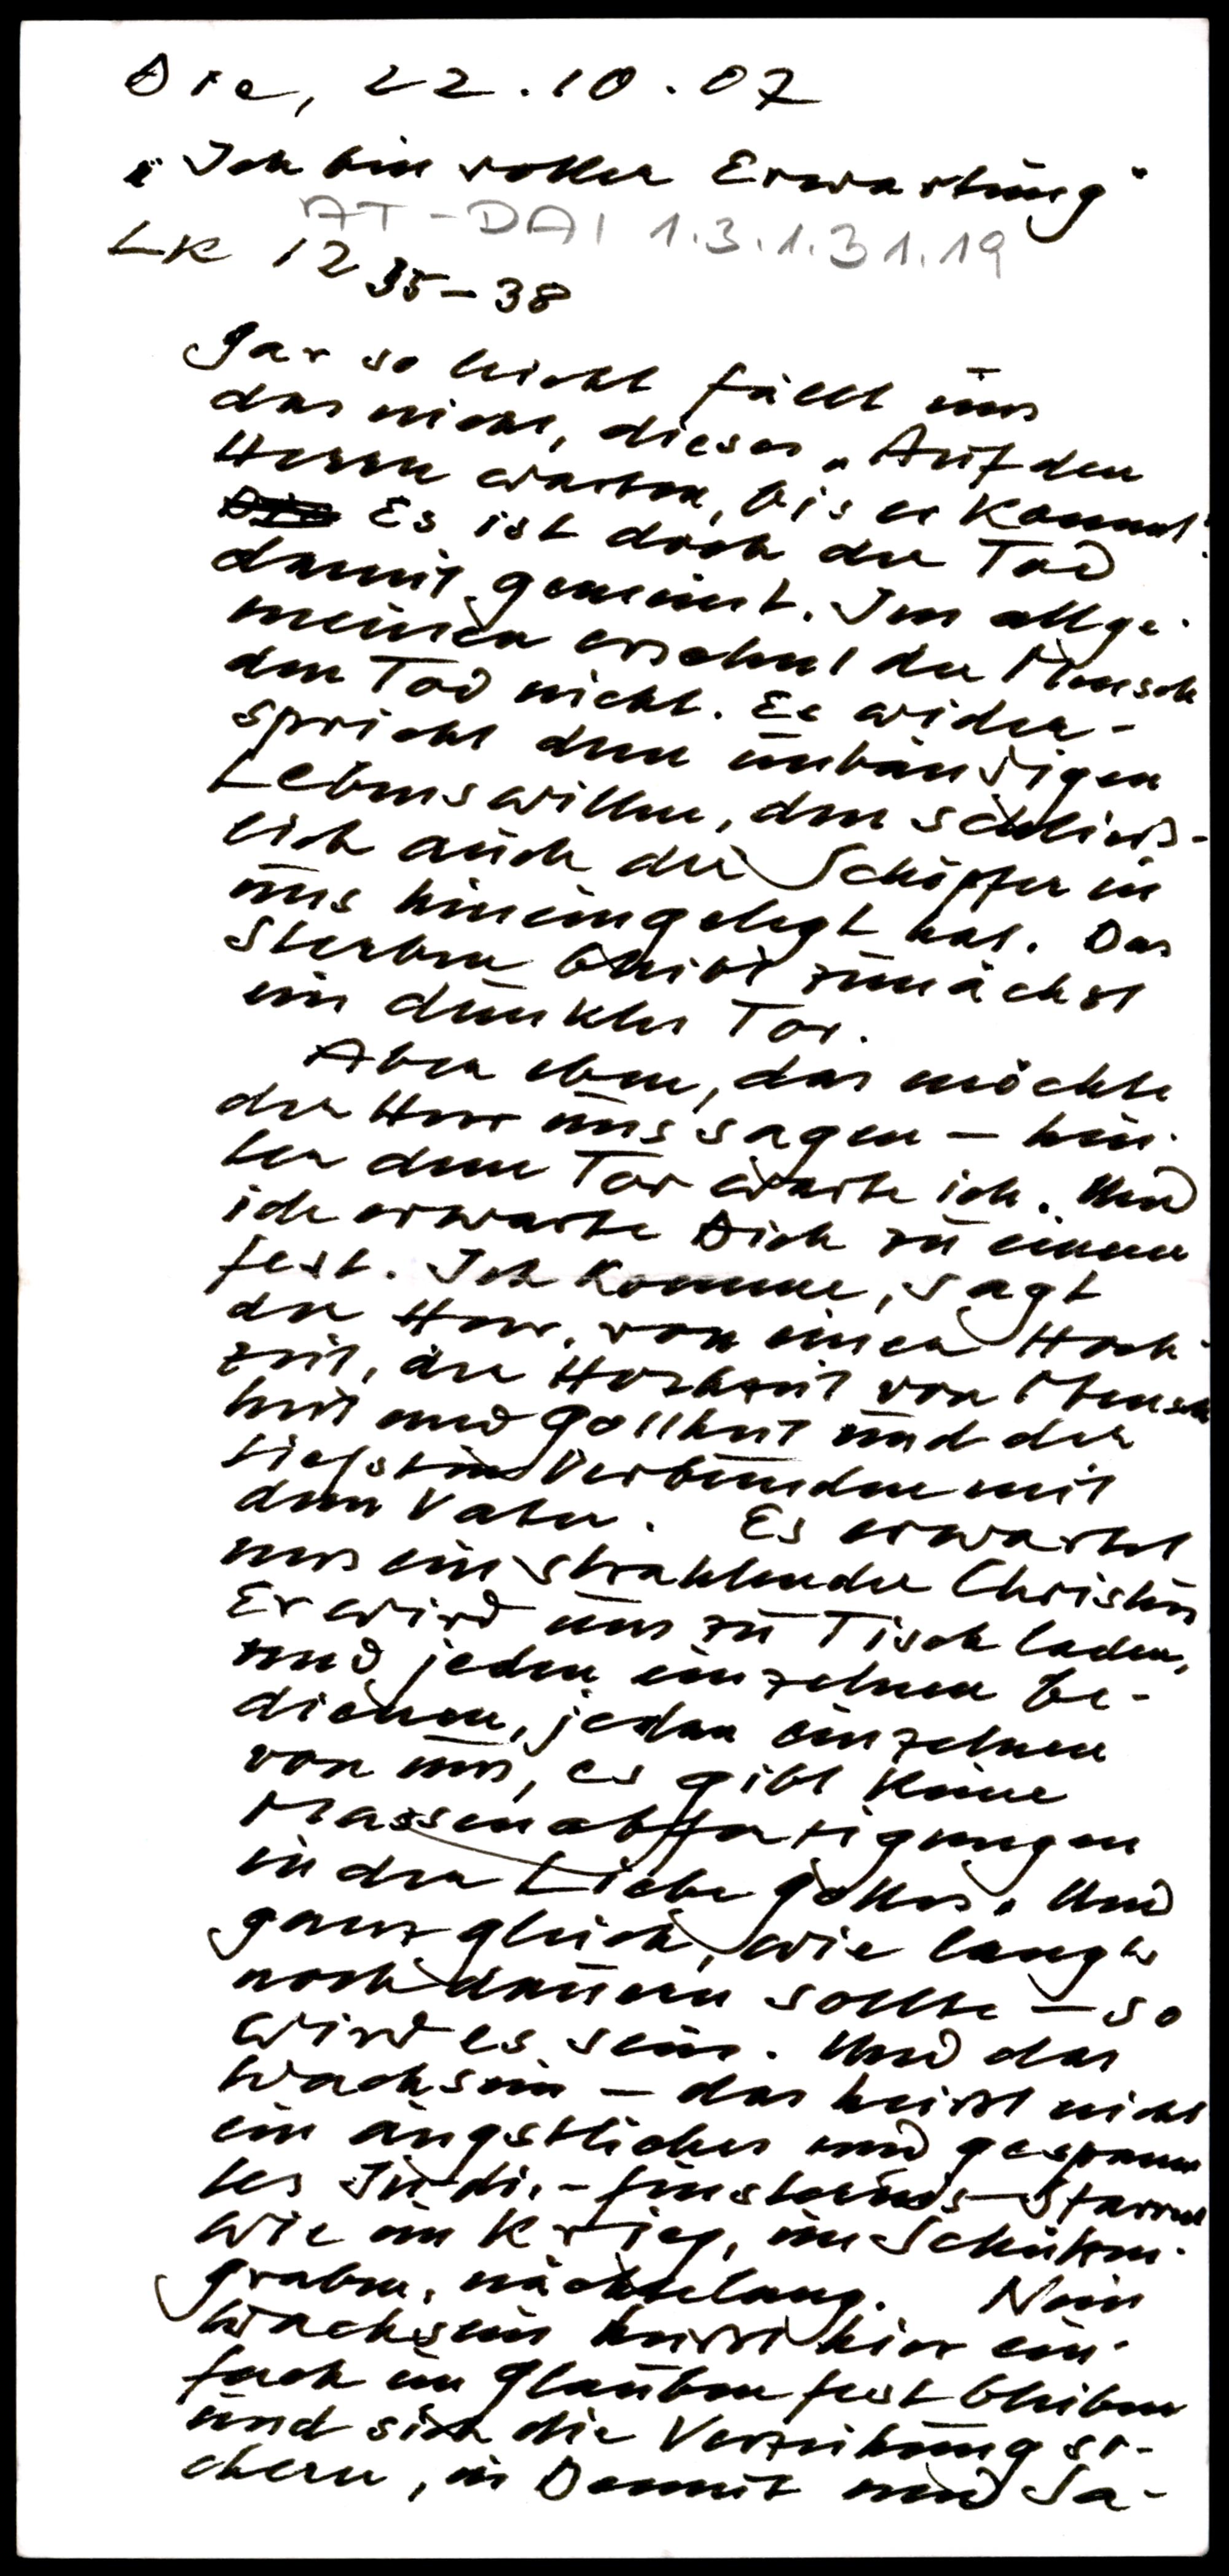 Die, 22.10.07
"Ich bin voller Erwartung"
AT-DAI 1.3.1.31.19
LK 12 35-38
Gar so leicht fällt uns
das nicht, dieses "Auf den
Herrn warten, bis er kommt".
Es ist doch der Tod
damit gemeint. Im allge-
meinen ersehnt der Mensch
den Tod nicht. Es wider-
spricht dem unbändigen
Lebenswillen, den schließ-
lich auch der Schöpfer in
uns hineingelegt hat. Das
Sterben bleibt zunächst
ein dunkles Tor.
Aber eben, das möchte
der Herr uns sagen - hin-
ter dem Tor warte ich. Und
ich erwarte Dich zu einem
Fest. Ich komme, sagt
der Herr, von einer Hoch-
zeit, der Hochzeit von Mensch
heit und Gottheit und der
tiefsten Verbunden mit
dem Vater. Es erwartet
uns ein strahlender Christus
Er wird uns zu Tisch laden,
und jeden einzelnen be-
dienen, jeden einzelnen
von uns, es gibt keine
Massenabfertigungen
in der Liebe Gottes. Und
ganz gleich, wie lang es
noch dauern sollte - so
wird es sein. Und das
Wachsein - das heisst nicht
ein ängstliches und gespann
tes In-die-Finsternis-Starren
wie im Krieg, im Schützen-
graben, nächtelang. Nein
Wachsein heisst hier ein-
fach im Glauben fest bleiben
und sich die Verzeihung si-
chern, in Demut und Sa-